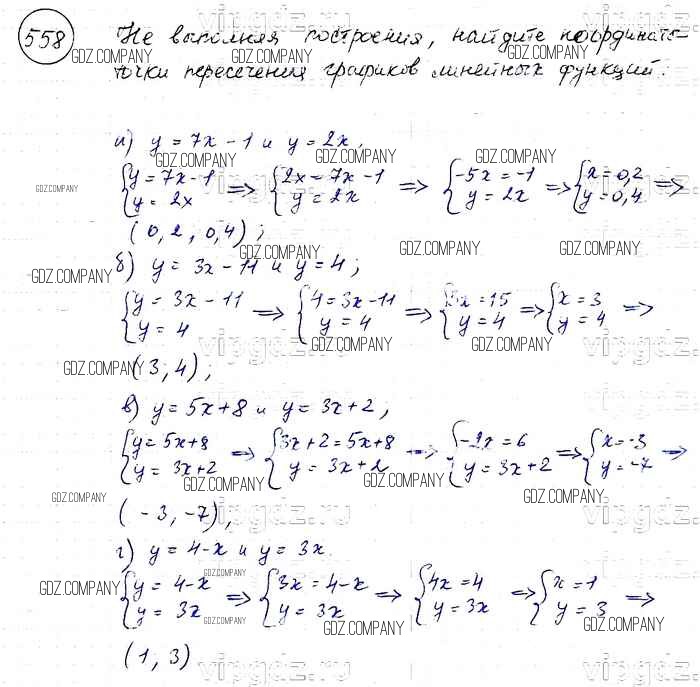 558 Не выполняя построения, найдите координаты
точки пересечения графиков линейных функций.
а) y = 7x - 1 и y = 2x,
{y = 7x - 1 => {2x = 7x - 1 => {-5x = -1 => {x = 0,2 =>
y = 2x y = 2x y = 2x y = 0,4
(0,2, 0,4);
б) y = 3x - 11 и y = 4;
{y = 3x - 11 => {4 = 3x - 11 => {3x = 15 => {x = 3 =>
y = 4 y = 4 y = 4 y = 4
(3, 4);
в) y = 5x + 8 и y = 3x + 2,
{y = 5x + 8 => {3x + 2 = 5x + 8 => {-2x = 6 => {x = -3 =>
y = 3x + 2 y = 3x + 2 y = 3x + 2 y = -7
(-3, -7),
г) y = 4 - x и y = 3x.
{y = 4 - x => {3x = 4 - x => {4x = 4 => {x = 1 =>
y = 3x y = 3x y = 3x y = 3
(1, 3)
GDZ.COMPANY
vipgdz.ru